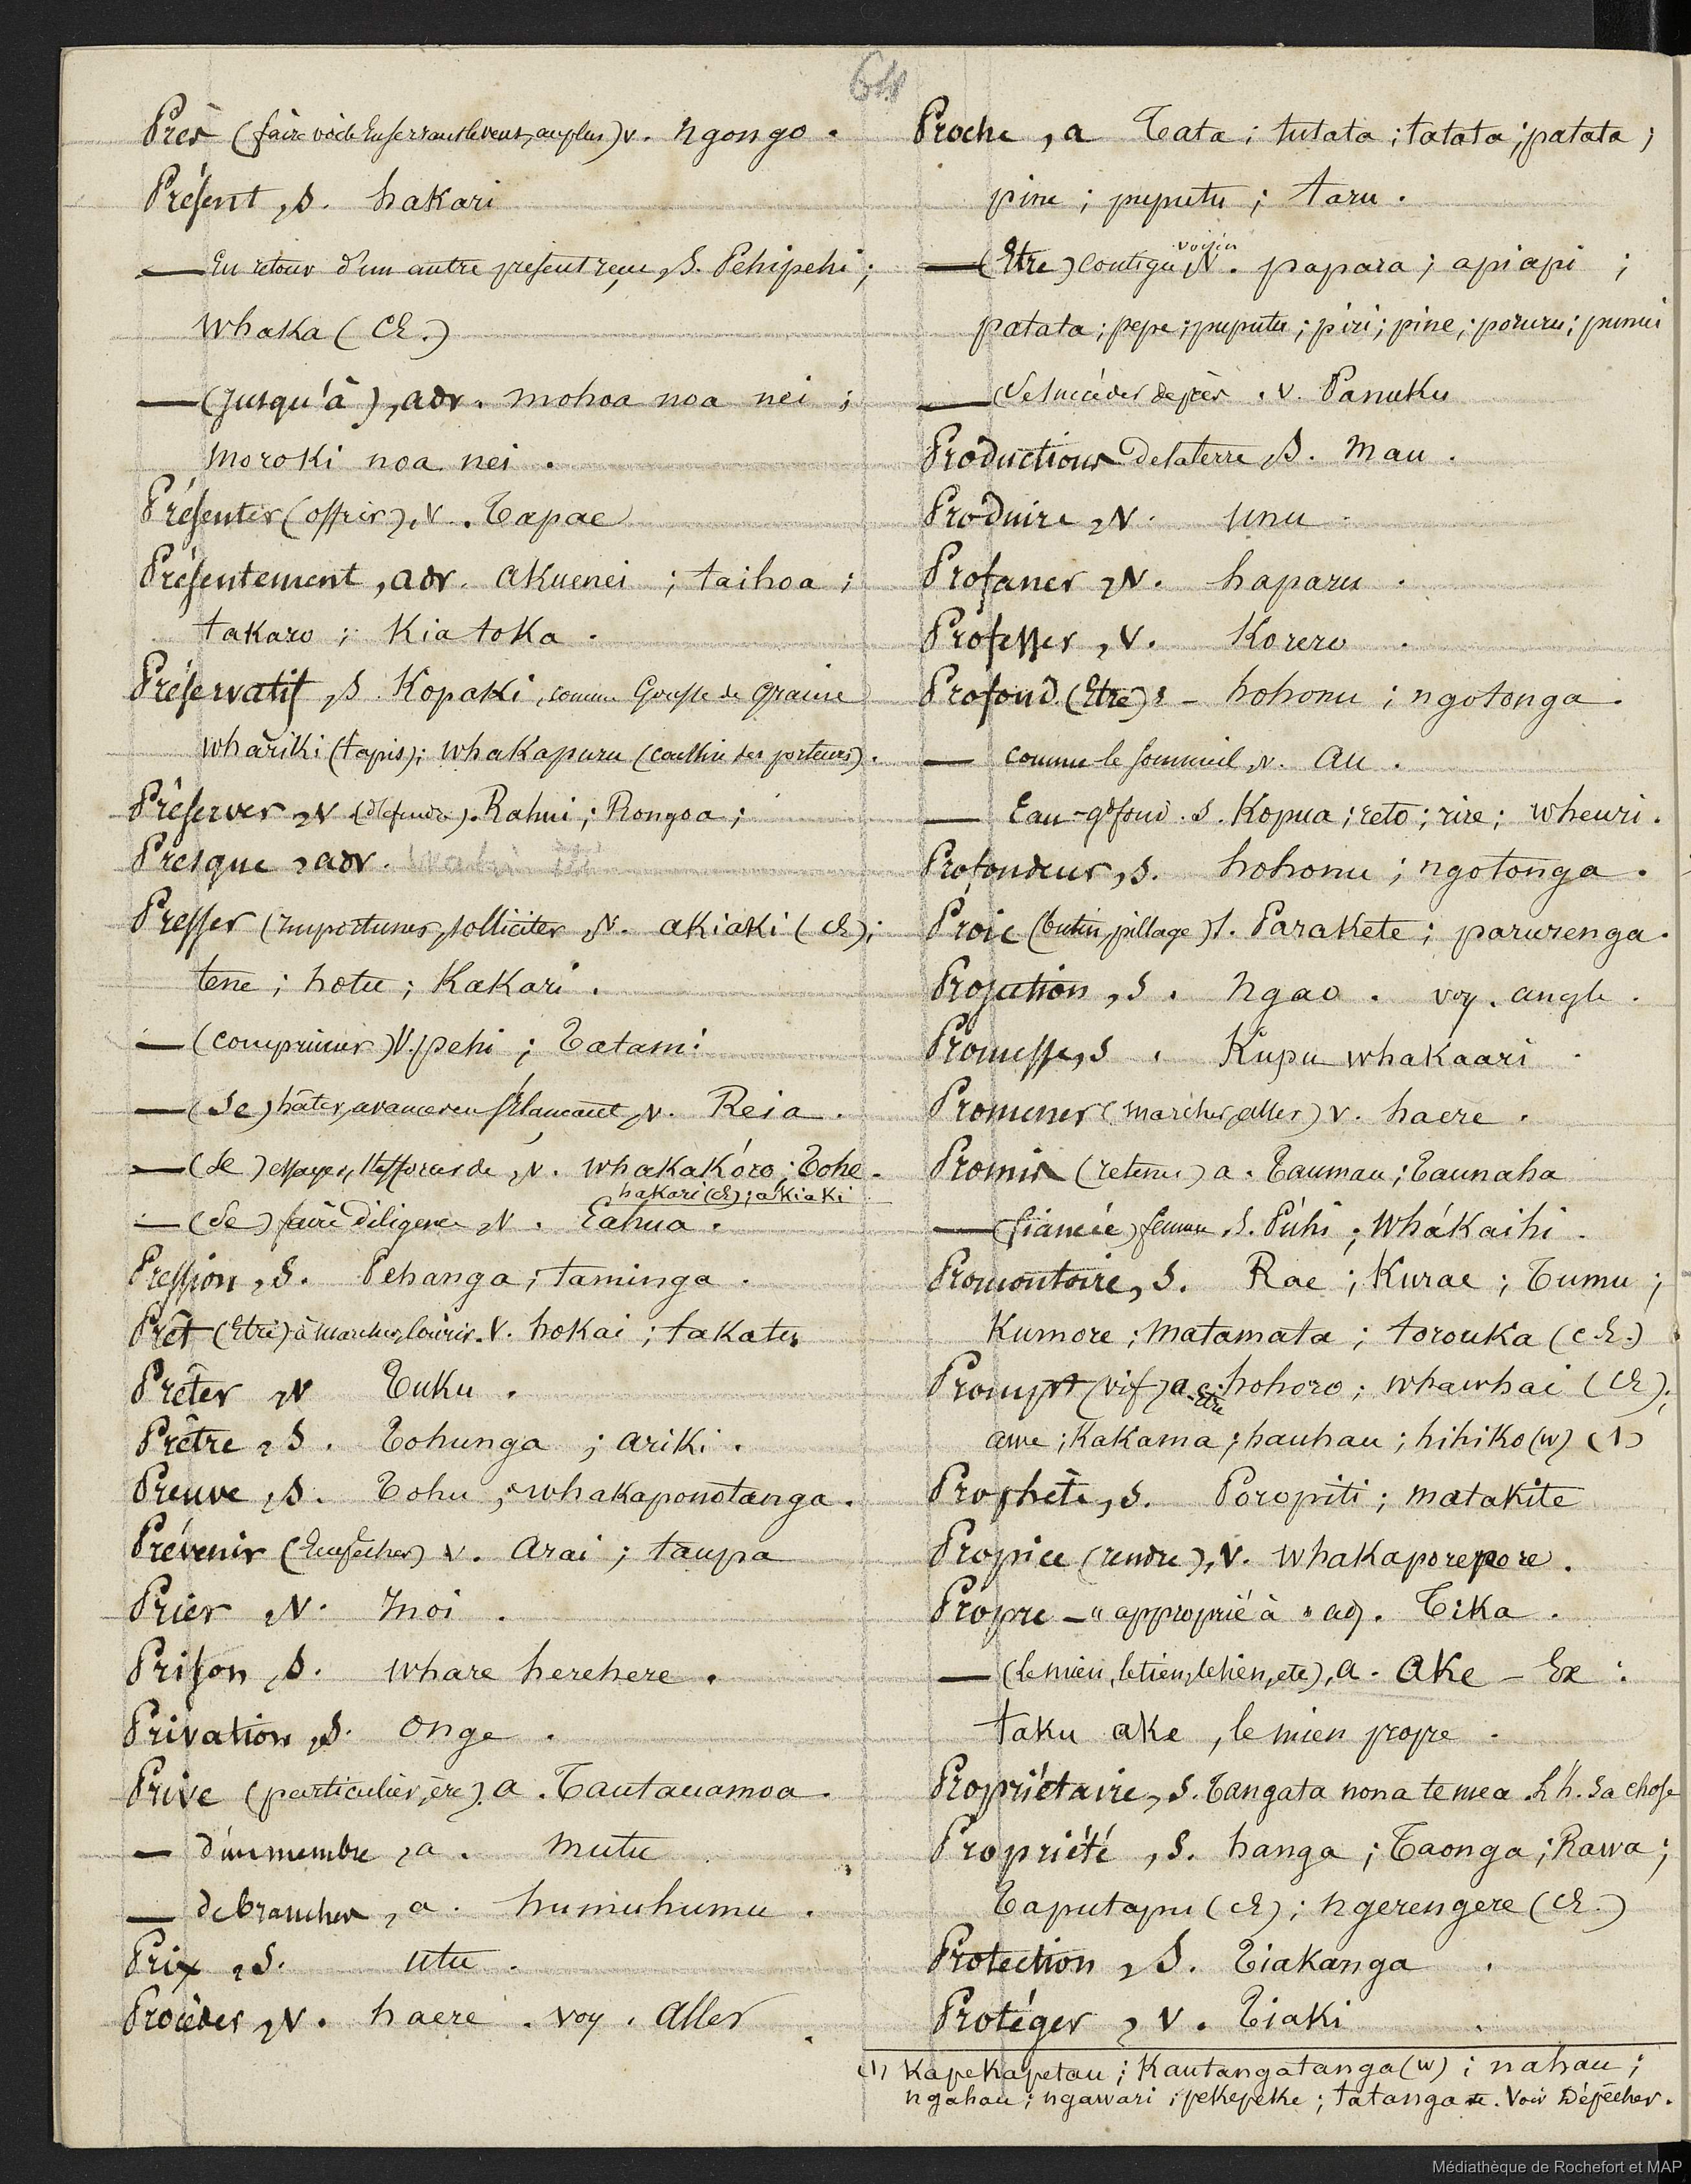 64
Près (faire voile en serrant le vent, au plus) v. ngongo.
Présent, s. hakari
— En retour d'un autre présent reçu, s. Pehipehi;
whaka (ch.)
— (jusqu'à), adv. mohoa noa nei;
moroki noa nei.
Présenter (offrir), v. Tapae
Présentement, adv. akuenei; taihoa;
takaro; Kia toKa.
Préservatif, s. Kopaki, comme Gousse de graine
whàriki (tapis); whakapuru (coussin des porteurs).
Préserver, v (défendre). Rahui; Rongoa;
Presque, adv. wahi iti
Presser (importuner, solliciter, v. akiaki (ch);
tene; hotu; Kakari.
— (comprimer) v. pehi; Tatami
— (se) hâter, avancer en s'élançant, v. Reia.
— (se) essayer, s'efforcer de, v. whakakóro; Tohe.
hakari (ch); akiaki
— (se) faire diligence, v. Eahua.
Pression, s. Pehanga; taminga.
Prêt (Etre) à marcher, courir. v. hokai; takatu
Prêter, v Tuku.
Prêtre, s. Tohunga; ariki.
Preuve, s. Tohu; whakaponotanga.
Prévenir (Empêcher) v. Arai; taupa
Prier, v. Inoi.
Prison, s. whare herehere.
Privation, s. onge.
Privé (particulier, ère). a. Tautauamoa.
— d'un membre, a. mutu
— de branches, a. humuhumu.
Prix, s. utu.
Procéder, v. haere. voy. Aller
Proche, a Tata; tutata; tatata; patata;
pine; puputu; taru.
voisin
— (Etre) contigu, v. papara; apiapi;
patata; pepe; puputu; piri; pine; poruru; punui
— Se succéder de près. v. Panuku
Productions de la terre, s. Mau.
Produire, v. unu.
Profaner, v. haparu.
Professer, v. Korero.
Profond (Etre): - hohonu; ngotonga.
— comme le sommeil, v. Au.
— Eau - gd fond. s. Kopua; reto; rire; wheuri.
Profondeur, s. hohonu; ngotonga.
Proie (butin, pillage) s. Parakete; parurenga.
Projection, s. ngao. voy. angle.
Promesse, s. Kupu whakaari.
Promener (marcher, aller) v. haere.
Promis (retenu) a. Taumau; Taunaha
— (fiancée) femme, s. Púhi; Whákaihi.
Promontoire, s. Rae; Kurae; Tumu;
Kumore; matamata; torouka (ch.)
Prompt (vif) a. être hohoro; whawhai (ch);
awe; Kakama; hauhau; hihiko (w) (1)
Prophète, s. Poropiti; matakite
Propice (rendre), v. whakaporepore.
Propre - "approprié à" adj. Tika.
— (le mien, le tien, le sien, etc), a. Ake - Ex:
taku ake, le mien propre.
Propriétaire, s. Tangata nona te mea. L'h. sa chose
Propriété, s. hanga; Taonga; Rawa;
Taputapu (ch); ngerengere (ch.)
Protection, s. Tiakanga.
Protéger, v. Tiaki
(1) Kapekapetau; Kautangatanga (w); nahau;
ngahau; ngawari; pekepeke; tatanga. Voir Dépêcher.
Médiathèque de Rochefort et MAP